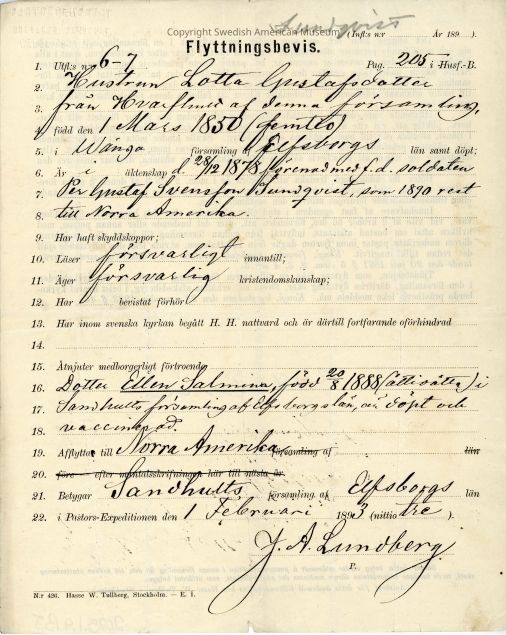 Copyright Swedish American Museum
Lundqvist
(Infl:s n:r År 189 ).
Flyttningsbevis.
1. Utfl:s n:r 6-7 Pag. 205 i Husf.-B.
2. Hustrun Lotta Gustafsdotter
3. från Hvarflund af denna församling,
4. född den 1 Mars 1850 (femtio)
5. i Wånga församling af Elfsborgs län samt döpt;
6. Är i äktenskap d. 28/12 1878 förenad med f.d. soldaten
7. Per Gustaf Svensson Lundqvist, som 1890 rest
8. till Norra Amerika.
9. Har haft skyddskoppor;
10. Läser försvarligt innantill;
11. Äger försvarlig kristendomskunskap;
12. Har bevistat förhör
13. Har inom svenska kyrkan begått H. H. nattvard och är därtill fortfarande oförhindrad
14.
15. Åtnjuter medborgerligt förtroende
16. Dotter Ellen Salmina, född 20/8 1888 (åttiåtta) i
17. Sandhults församling af Elfsborgs län, och döpt och
18. vaccinerad.
19. Afflyttar till Norra Amerika församling af län
20. före efter mantalsskrifningen här till nästa år
21. Betygar Sandhults församling af Elfsborgs län
22. i Pastors-Expeditionen den 1 Februari 1893 (nittio tre ).
J. A. Lundberg.
P.
N:r 426. Hasse W. Tullberg, Stockholm. — E. 1.